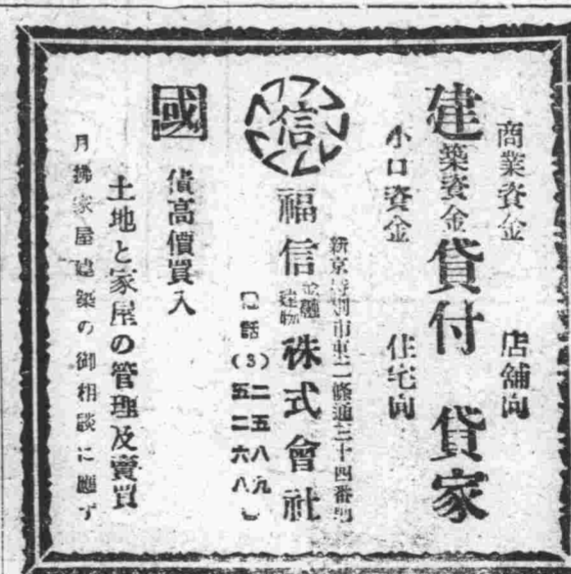 商業資金 店舗向
建築資金貸付 貸家
小口資金 住宅向
新京特別市東二條通三十四番地
信 福信金融建物株式會社
電話(3)二五八九
五二六八
國債高價買入
土地と家屋の管理及賣買
月拂家屋建築の御相談に應ず